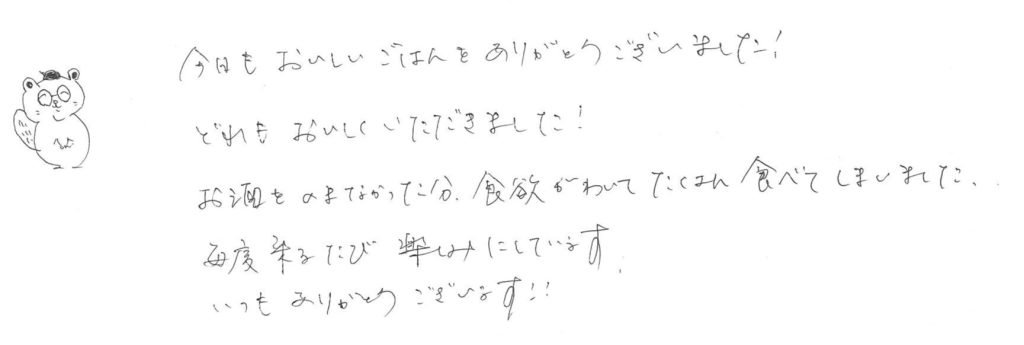 今日も おいしい ごはんを ありがとう ございました!
どれも おいしく いただきました!
お酒を のまなかった分、食欲がわいて たくさん 食べて しまいました.
毎度 来るたび 楽しみにしています.
いつも ありがとう ございます!!